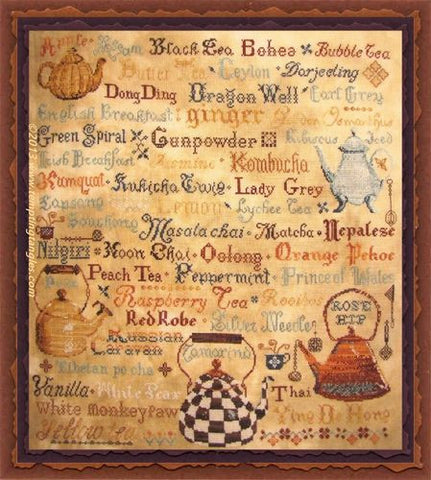 Apple • Assam • Black Tea • Bohea • Bubble Tea
Butter Tea • Ceylon • Darjeeling
Dong Ding • Dragon Well • Earl Grey
English Breakfast • ginger • Golden Osmanthus
Green Spiral • Gunpowder • Hibiscus • Iced
Irish Breakfast • Jasmine • Kombucha
Kumquat • Kukicha Twig • Lady Grey
Lapsang Souchong • Lemon • Lychee Tea
Masala chai • Matcha • Nepalese
Nilgiri • Noon Chai • Oolong • Orange Pekoe
Peach Tea • Peppermint • Prince of Wales
Raspberry Tea • Rooibos
ROSE HIP
Red Robe • Silver Needle
Russian Caravan
Tamarind
Tibetan po cha
Vanilla • White Pear • Thai
White monkey paw • Ying De Hong
Yellow tea